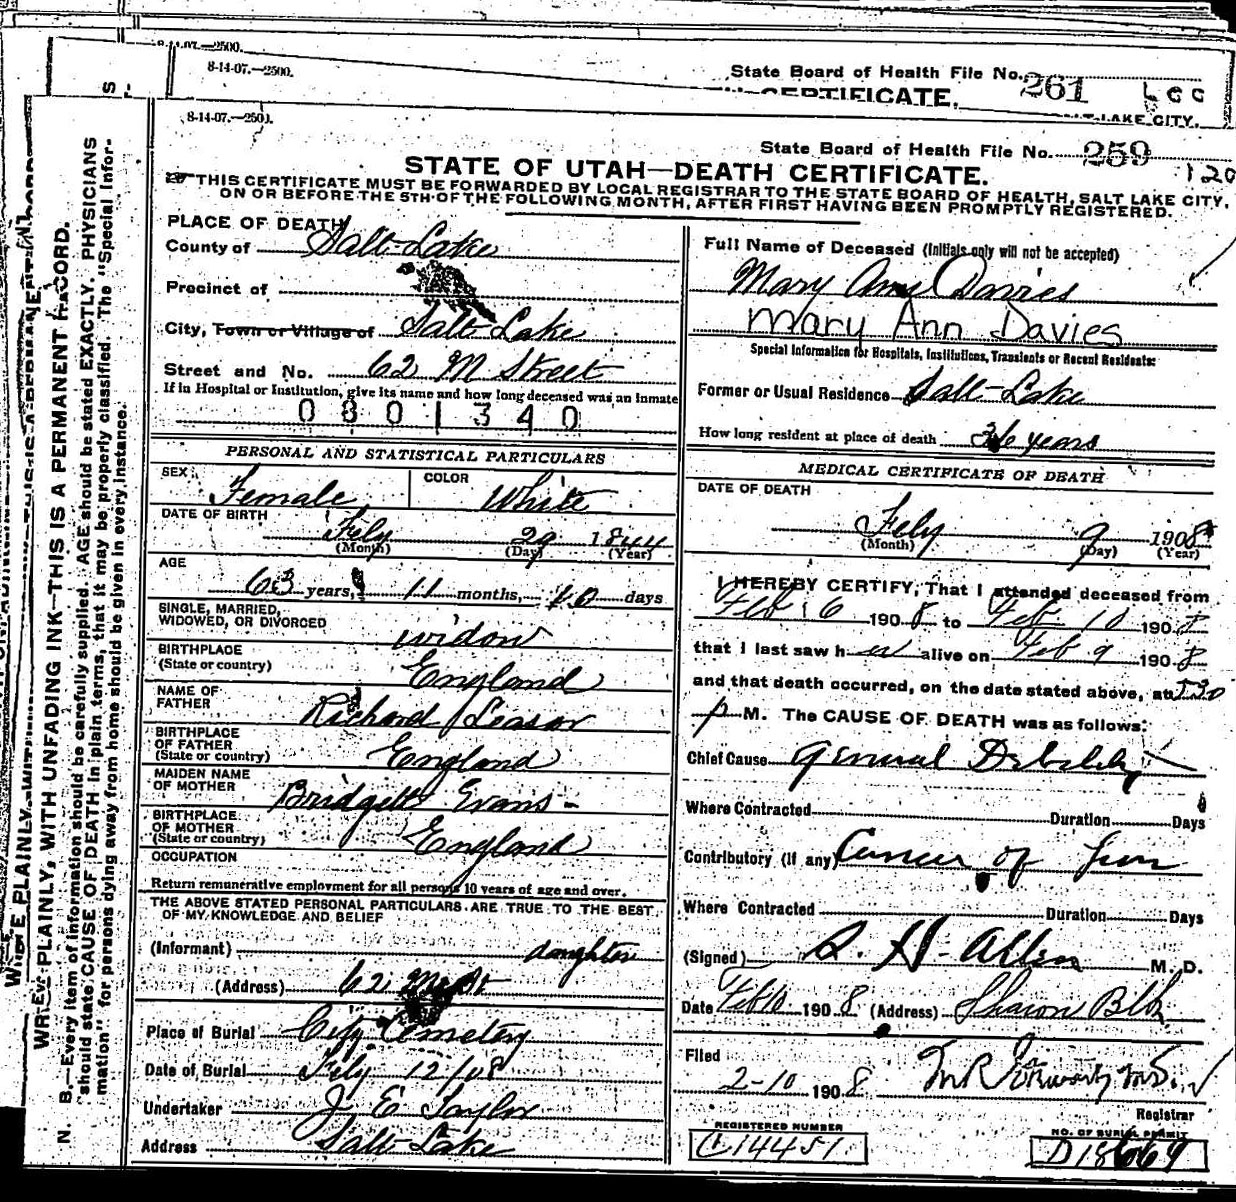 8-14-07.—2500.
8-14-07.—2500.
State Board of Health File No. 261
CERTIFICATE.
LAKE CITY.
8-14-07.—2500.
State Board of Health File No. 259
120
STATE OF UTAH—DEATH CERTIFICATE.
THIS CERTIFICATE MUST BE FORWARDED BY LOCAL REGISTRAR TO THE STATE BOARD OF HEALTH, SALT LAKE CITY,
ON OR BEFORE THE 5TH OF THE FOLLOWING MONTH, AFTER FIRST HAVING BEEN PROMPTLY REGISTERED.
WRITE PLAINLY, WITH UNFADING INK—THIS IS A PERMANENT RECORD.
N. B.—Every item of information should be carefully supplied. AGE should be stated EXACTLY. PHYSICIANS
should state CAUSE OF DEATH in plain terms, that it may be properly classified. The "Special Infor-
mation" for persons dying away from home should be given in every instance.
PLACE OF DEATH
County of Salt Lake
Precinct of
City, Town or Village of Salt Lake
Street and No. 62 M Street
If in Hospital or Institution, give its name and how long deceased was an inmate
0801340
PERSONAL AND STATISTICAL PARTICULARS
SEX Female COLOR White
DATE OF BIRTH
Feby 29 1844
(Month) (Day) (Year)
AGE
63 years, 11 months, 10 days
SINGLE, MARRIED,
WIDOWED, OR DIVORCED widow
BIRTHPLACE
(State or country) England
NAME OF
FATHER Richard Leason
BIRTHPLACE
OF FATHER
(State or country) England
MAIDEN NAME
OF MOTHER Bridgett Evans
BIRTHPLACE
OF MOTHER
(State or country) England
OCCUPATION
Return remunerative employment for all persons 10 years of age and over.
THE ABOVE STATED PERSONAL PARTICULARS ARE TRUE TO THE BEST
OF MY KNOWLEDGE AND BELIEF
(Informant) daughter
(Address) 62 M St
Place of Burial City Cemetery
Date of Burial Feby 12/08
Undertaker J E Taylor
Address Salt Lake
Full Name of Deceased (Initials only will not be accepted)
Mary Ann Davies
Mary Ann Davies
Special Information for Hospitals, Institutions, Transients or Recent Residents:
Former or Usual Residence Salt Lake
How long resident at place of death 36 years
MEDICAL CERTIFICATE OF DEATH
DATE OF DEATH
Feby 9 1908
(Month) (Day) (Year)
I HEREBY CERTIFY, That I attended deceased from
Feb 6 1908 to Feb 10 1908
that I last saw her alive on Feb 9 1908
and that death occurred, on the date stated above, at 530
p M. The CAUSE OF DEATH was as follows:
Chief Cause General Debility
Where Contracted Duration Days
Contributory (if any) Cancer of
Where Contracted Duration Days
(Signed) S. H. Allen M. D.
Date Feb 10 1908 (Address) Sharon Blk
Filed
2-10 1908
Registrar
REGISTERED NUMBER
C14451
NO. OF BURIAL PERMIT
D18669